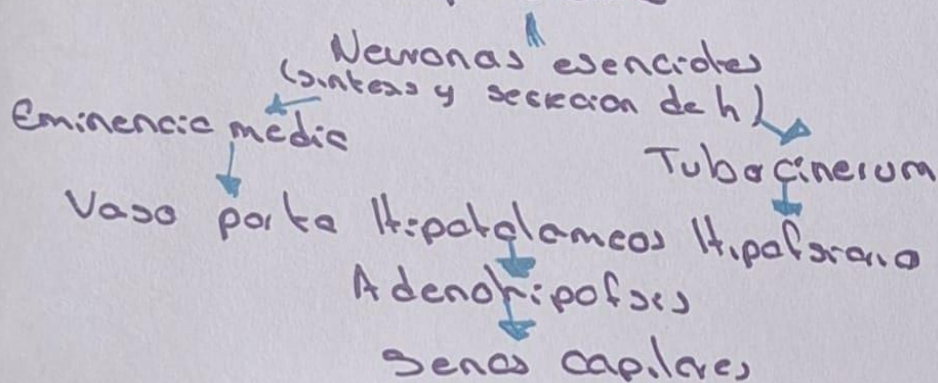 Neuronas esenciales
(sintesis y secrecion de h)
Eminencia media
Tubo cinerum
Vaso porta Hipotalameos Hipofsrario
Adenohipofsis
Senos capilares